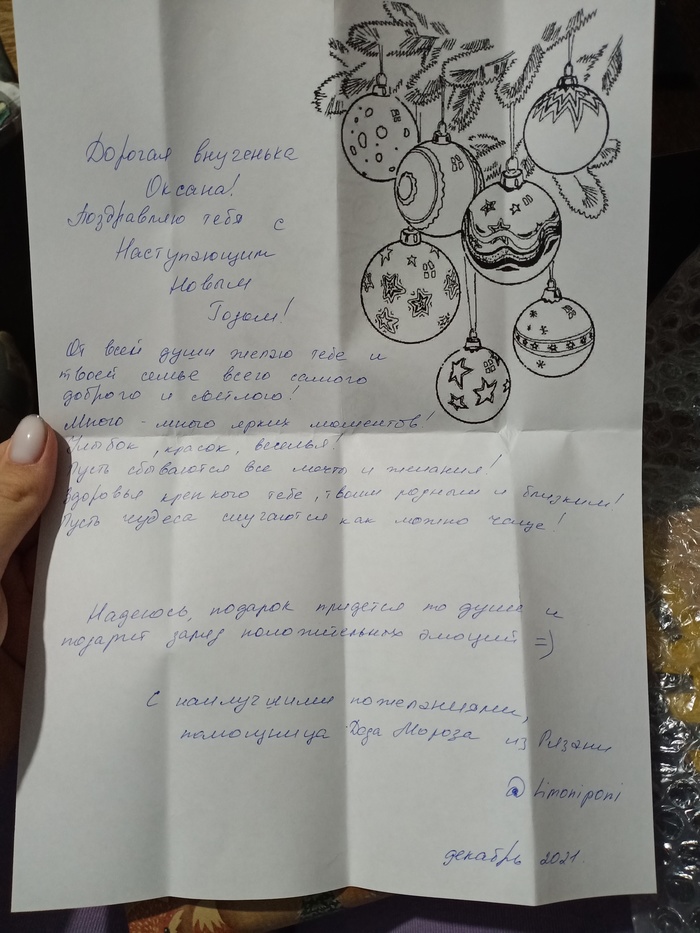 Дорогая внученька
Оксана!
Поздравляю тебя с
Наступающим
Новым
Годом!
От всей души желаю тебе и
твоей семье всего самого
доброго и светлого!
Много - много ярких моментов!
Улыбок, красок, веселья!
Пусть сбываются все мечты и желания!
Здоровья крепкого тебе, твоим родным и близким!
Пусть чудеса случаются как можно чаще!
Надеюсь, подарок придется по душе и
подарит заряд положительных эмоций =)
С наилучшими пожеланиями,
помощница Деда Мороза из Рязани
@limoniponi
декабрь 2021.